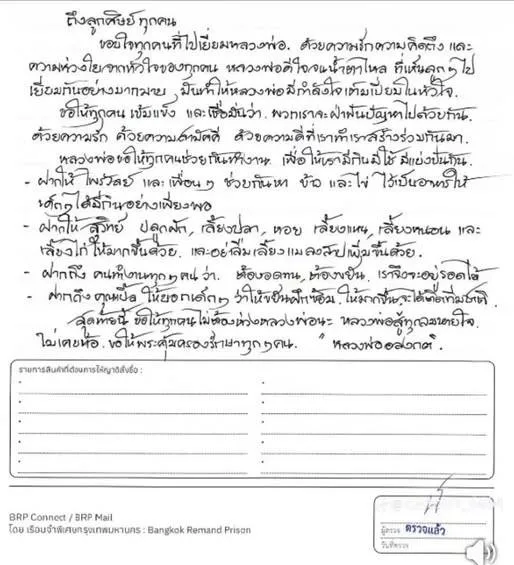 ถึงลูกศิษย์ทุกคน
ขอบใจทุกคนที่ไปเยี่ยมหลวงพ่อ. ด้วยความรักความคิดถึง และ
ความห่วงใยจากหัวใจของทุกคน หลวงพ่อดีใจจนน้ำตาไหล ที่เห็นลูกๆไป
เยี่ยมกันอย่างมากมาย มันทำให้หลวงพ่อมีกำลังใจเต็มเปี่ยมในหัวใจ.
ขอให้ทุกคน เข้มแข็ง และเชื่อมั่นว่า. พวกเราจะฝ่าฟันปัญหาไปด้วยกัน.
ด้วยความรัก ด้วยความสามัคคี ด้วยความดีที่เราทำเราสร้างร่วมกันมา.
หลวงพ่อขอให้ทุกคนช่วยกันทำงาน เพื่อให้เรามีกินมีใช้ มีแบ่งปันกัน.
- ฝากให้ ไพรวัลย์ และเพื่อนๆ ช่วยกันหา ข้าว และไข่ ไว้เป็นอาหารให้
เด็กๆได้มีกินอย่างเพียงพอ
- ฝากให้ สุวิทย์ ปลูกผัก, เลี้ยงปลา, หอย เลี้ยงแหน, เลี้ยงหนอน และ
เลี้ยงไก่ ให้มากขึ้นด้วย. และอย่าลืมเลี้ยงแมลงสาปเพิ่มขึ้นด้วย.
- ฝากถึง คนทำงานทุกๆคนว่า. ต้องอดทน, ต้องขยัน, เราจึงจะอยู่รอดได้
- ฝากถึงคุณเปิ้ล ให้บอกเด็กๆว่าให้ขยันฝึกซ้อม ให้มากขึ้น จะได้ติดทีมชาติ.
สุดท้ายนี้ ขอให้ทุกคนไม่ต้องห่วงหลวงพ่อนะ หลวงพ่อสู้ทุกลมหายใจ.
ไม่เคยท้อ. ขอให้พระคุ้มครองรักษาทุกๆคน. " หลวงพ่ออลงกต.
รายการสินค้าที่ต้องการให้ญาติสั่งซื้อ :
BRP Connect / BRP Mail
โดย เรือนจำพิเศษกรุงเทพมหานคร : Bangkok Remand Prison
ผู้ตรวจ ตรวจแล้ว
วันที่ตรวจ